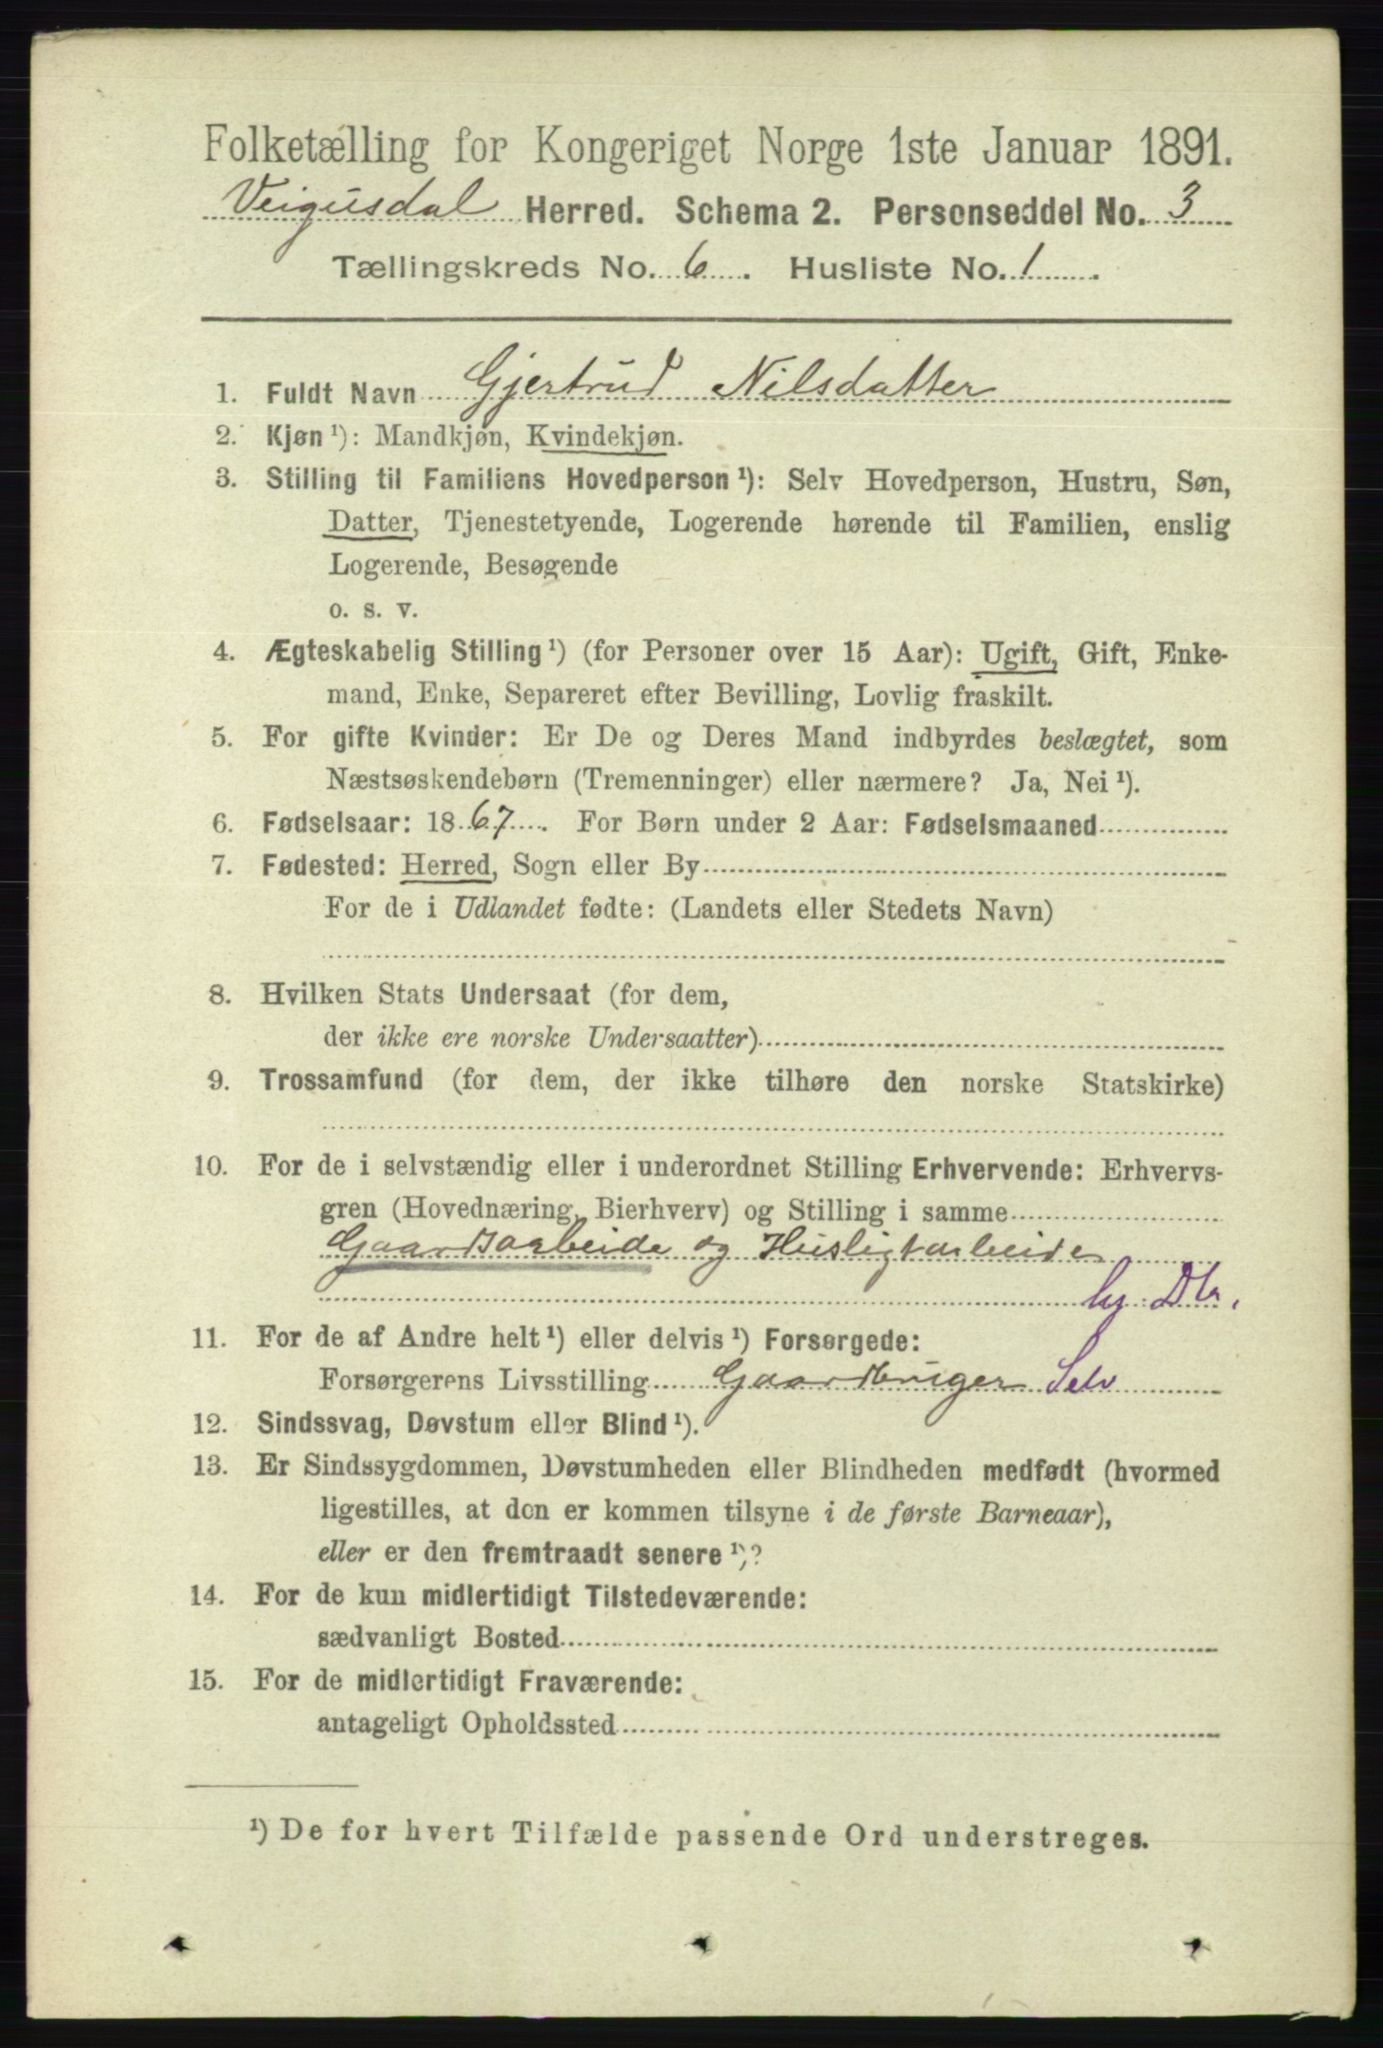 Folketælling for Kongeriget Norge 1ste Januar 1891.
Veigusdal Herred. Schema 2. Personseddel No. 3
Tællingskreds No. 6. Husliste No. 1.
1. Fuldt Navn Gjertrud Nilsdatter
2. Kjøn ¹): Mandkjøn, Kvindekjøn.
3. Stilling til Familiens Hovedperson ¹): Selv Hovedperson, Hustru, Søn,
Datter, Tjenestetyende, Logerende hørende til Familien, enslig
Logerende, Besøgende
o. s. v.
4. Ægteskabelig Stilling ¹) (for Personer over 15 Aar): Ugift, Gift, Enke-
mand, Enke, Separeret efter Bevilling, Lovlig fraskilt.
5. For gifte Kvinder: Er De og Deres Mand indbyrdes beslægtet, som
Næstsøskendebørn (Tremenninger) eller nærmere? Ja, Nei ¹).
6. Fødselsaar: 1867. For Børn under 2 Aar: Fødselsmaaned
7. Fødested: Herred, Sogn eller By
For de i Udlandet fødte: (Landets eller Stedets Navn)
8. Hvilken Stats Undersaat (for dem,
der ikke ere norske Undersaatter)
9. Trossamfund (for dem, der ikke tilhøre den norske Statskirke)
10. For de i selvstændig eller i underordnet Stilling Erhvervende: Erhvervs-
gren (Hovednæring, Bierhverv) og Stilling i samme
Gaardsarbeide og Husligtarbeide
hj. Dtr.
11. For de af Andre helt ¹) eller delvis ¹) Forsørgede:
Forsørgerens Livsstilling Gaardbruger Selv
12. Sindssvag, Døvstum eller Blind ¹).
13. Er Sindssygdommen, Døvstumheden eller Blindheden medfødt (hvormed
ligestilles, at den er kommen tilsyne i de første Barneaar),
eller er den fremtraadt senere ¹)?
14. For de kun midlertidigt Tilstedeværende:
sædvanligt Bosted
15. For de midlertidigt Fraværende:
antageligt Opholdssted
¹) De for hvert Tilfælde passende Ord understreges.